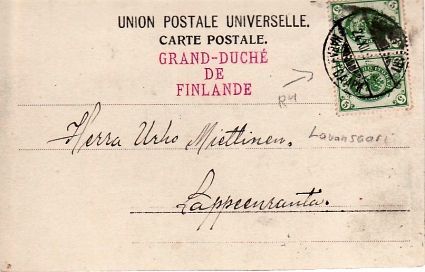 UNION POSTALE UNIVERSELLE.
CARTE POSTALE.
GRAND-DUCHÉ
DE
FINLANDE
R4
Herra Urho Miettinen.
Lavansaari
Lappeenranta.
5 5
5 5